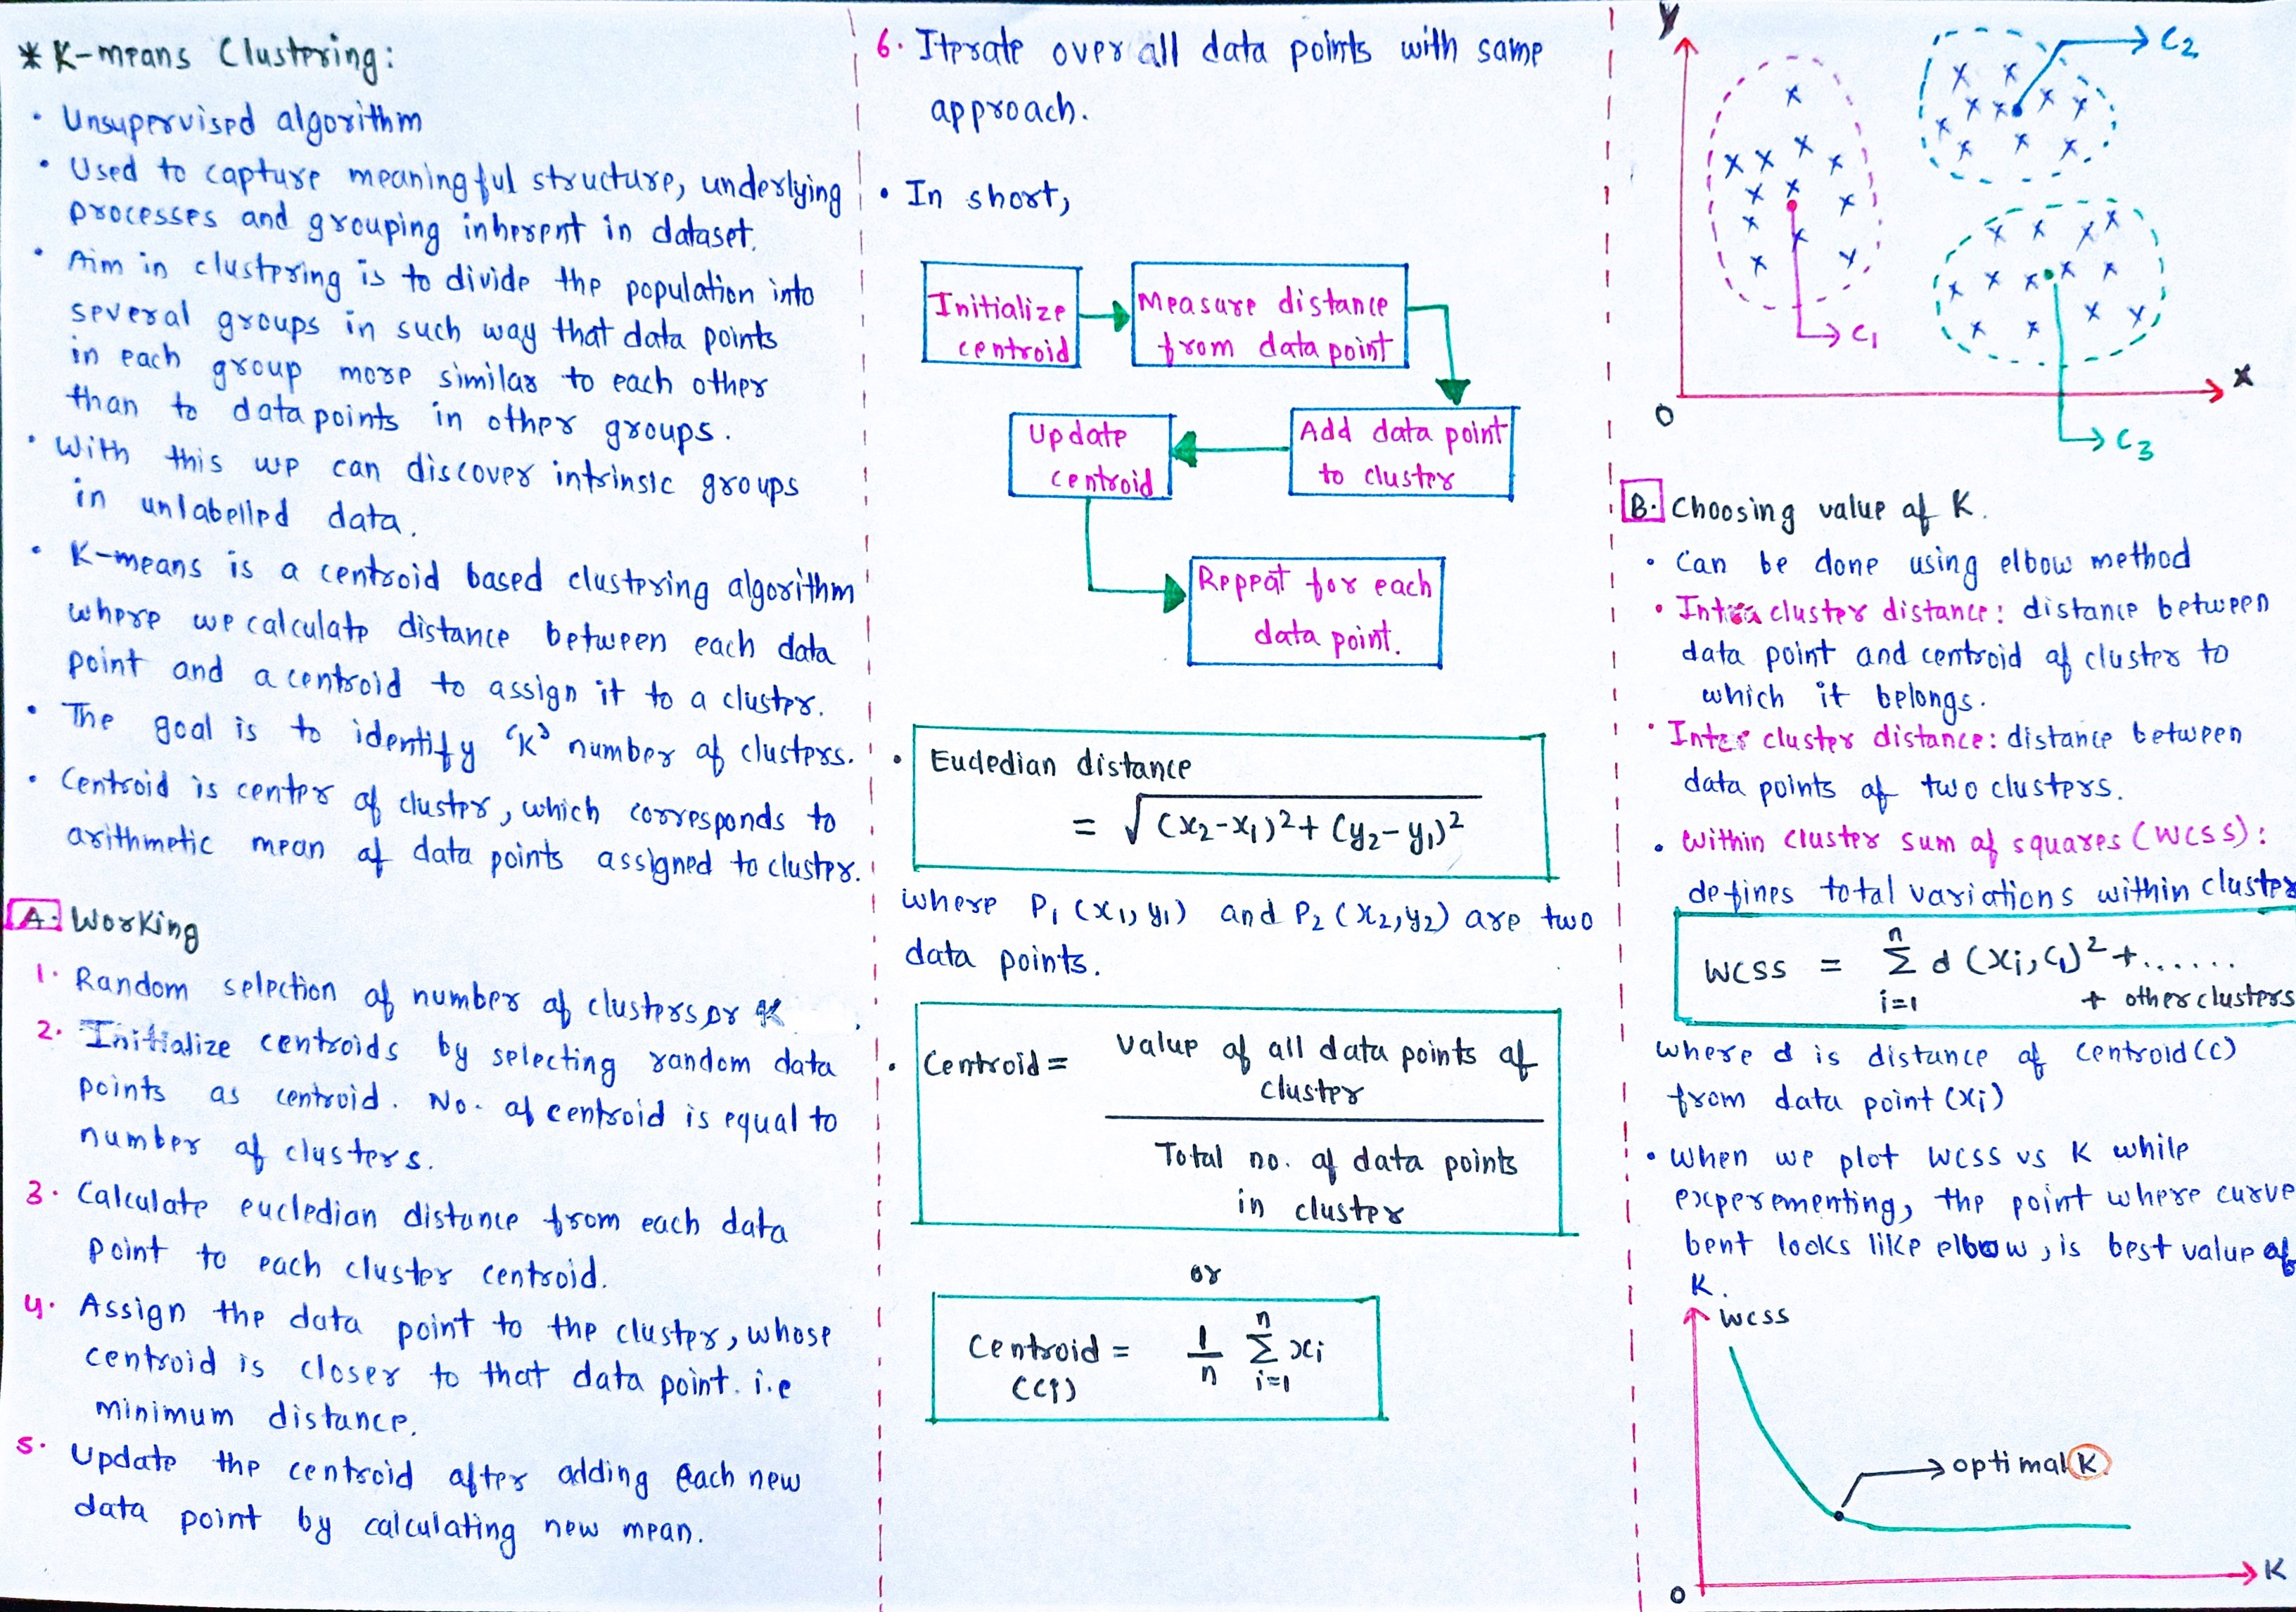 * K-means Clustering:
• Unsupervised algorithm
• Used to capture meaningful structure, underlying
processes and grouping inherent in dataset.
• Aim in clustering is to divide the population into
several groups in such way that data points
in each group more similar to each other
than to data points in other groups.
• With this we can discover intrinsic groups
in unlabelled data.
• K-means is a centroid based clustering algorithm
where we calculate distance between each data
point and a centroid to assign it to a cluster.
• The goal is to identify 'K' number of clusters.
• Centroid is center of cluster, which corresponds to
arithmetic mean of data points assigned to cluster.
A. Working
1. Random selection of number of clusters or K
2. Initialize centroids by selecting random data
points as centroid. No. of centroid is equal to
number of clusters.
3. Calculate eucledian distance from each data
point to each cluster centroid.
4. Assign the data point to the cluster, whose
centroid is closer to that data point. i.e
minimum distance.
5. Update the centroid after adding each new
data point by calculating new mean.
6. Iterate over all data points with same
approach.
• In short,
Initialize
centroid
Measure distance
from data point
Add data point
to cluster
Update
centroid
Repeat for each
data point.
• Eucledian distance
= √(x₂-x₁)² + (y₂-y₁)²
where P₁ (x₁, y₁) and P₂ (x₂, y₂) are two
data points.
• Centroid = Value of all data points of
cluster
Total no. of data points
in cluster
or
Centroid = 1/n Σ xi
n
i=1
(Ci)
Y
C2
C1
X
O
C3
B. Choosing value of K.
• Can be done using elbow method
• Intra cluster distance: distance between
data point and centroid of cluster to
which it belongs.
• Inter cluster distance: distance between
data points of two clusters.
• Within cluster sum of squares (WCSS):
defines total variations within cluster
n
WCSS = Σ d (xi, c1)² + ......
i=1
+ other clusters
where d is distance of centroid (c)
from data point (xi)
• When we plot WCSS vs K while
experementing, the point where curve
bent looks like elbow, is best value of
K.
WCSS
optimal K
O
K